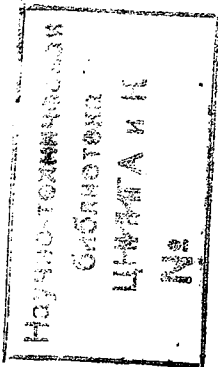 Научно-техническая
библиотека
ЦНИИГАиК
№